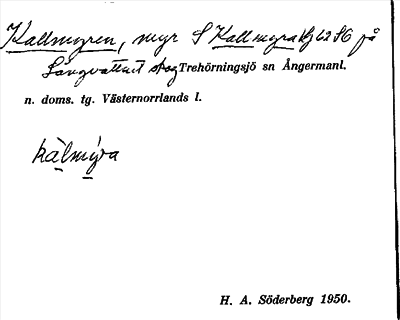 Kallmyren, myr S Kallmyra på
Långvattnet skog Trehörningsjö sn Ångermanl.
n. doms. tg. Västernorrlands l.
kàlmýra
H. A. Söderberg 1950.